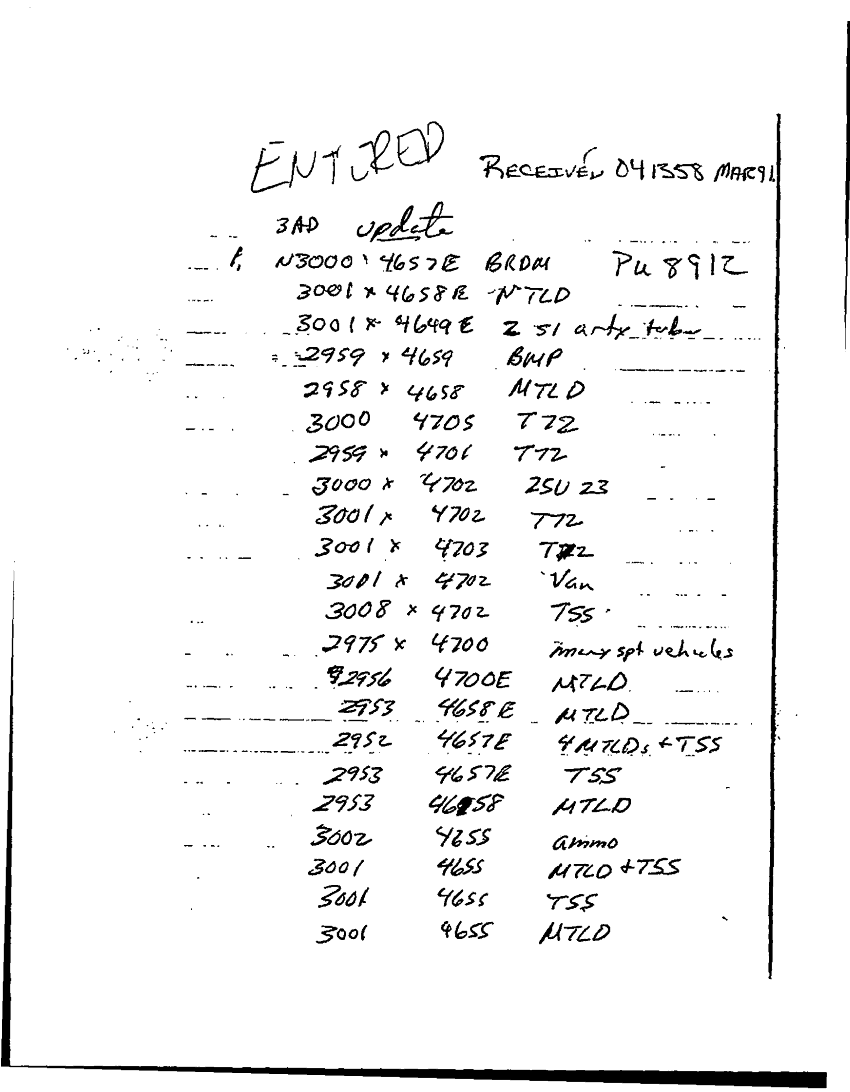 ENTURED
RECEIVED 041358 MAR91
3AD update
1. N3000 x 4657E BRDM PU 8912
3001 x 4658E MTLD
3001 x 4649E 2 51 arty tube
2959 x 4659 BMP
2958 x 4658 MTLD
3000 4705 T72
2959 x 4701 T72
3000 x 4702 ZSU 23
3001 x 4702 T72
3001 x 4703 T72
3001 x 4702 Van
3008 x 4702 TSS
2975 x 4700 many spt vehicles
2956 4700E MTLD
2953 4658E MTLD
2952 4657E 4 MTLDs + TSS
2953 4657E TSS
2953 4658 MTLD
3002 4255 ammo
3001 4655 MTLD + TSS
3001 4655 TSS
3001 4655 MTLD